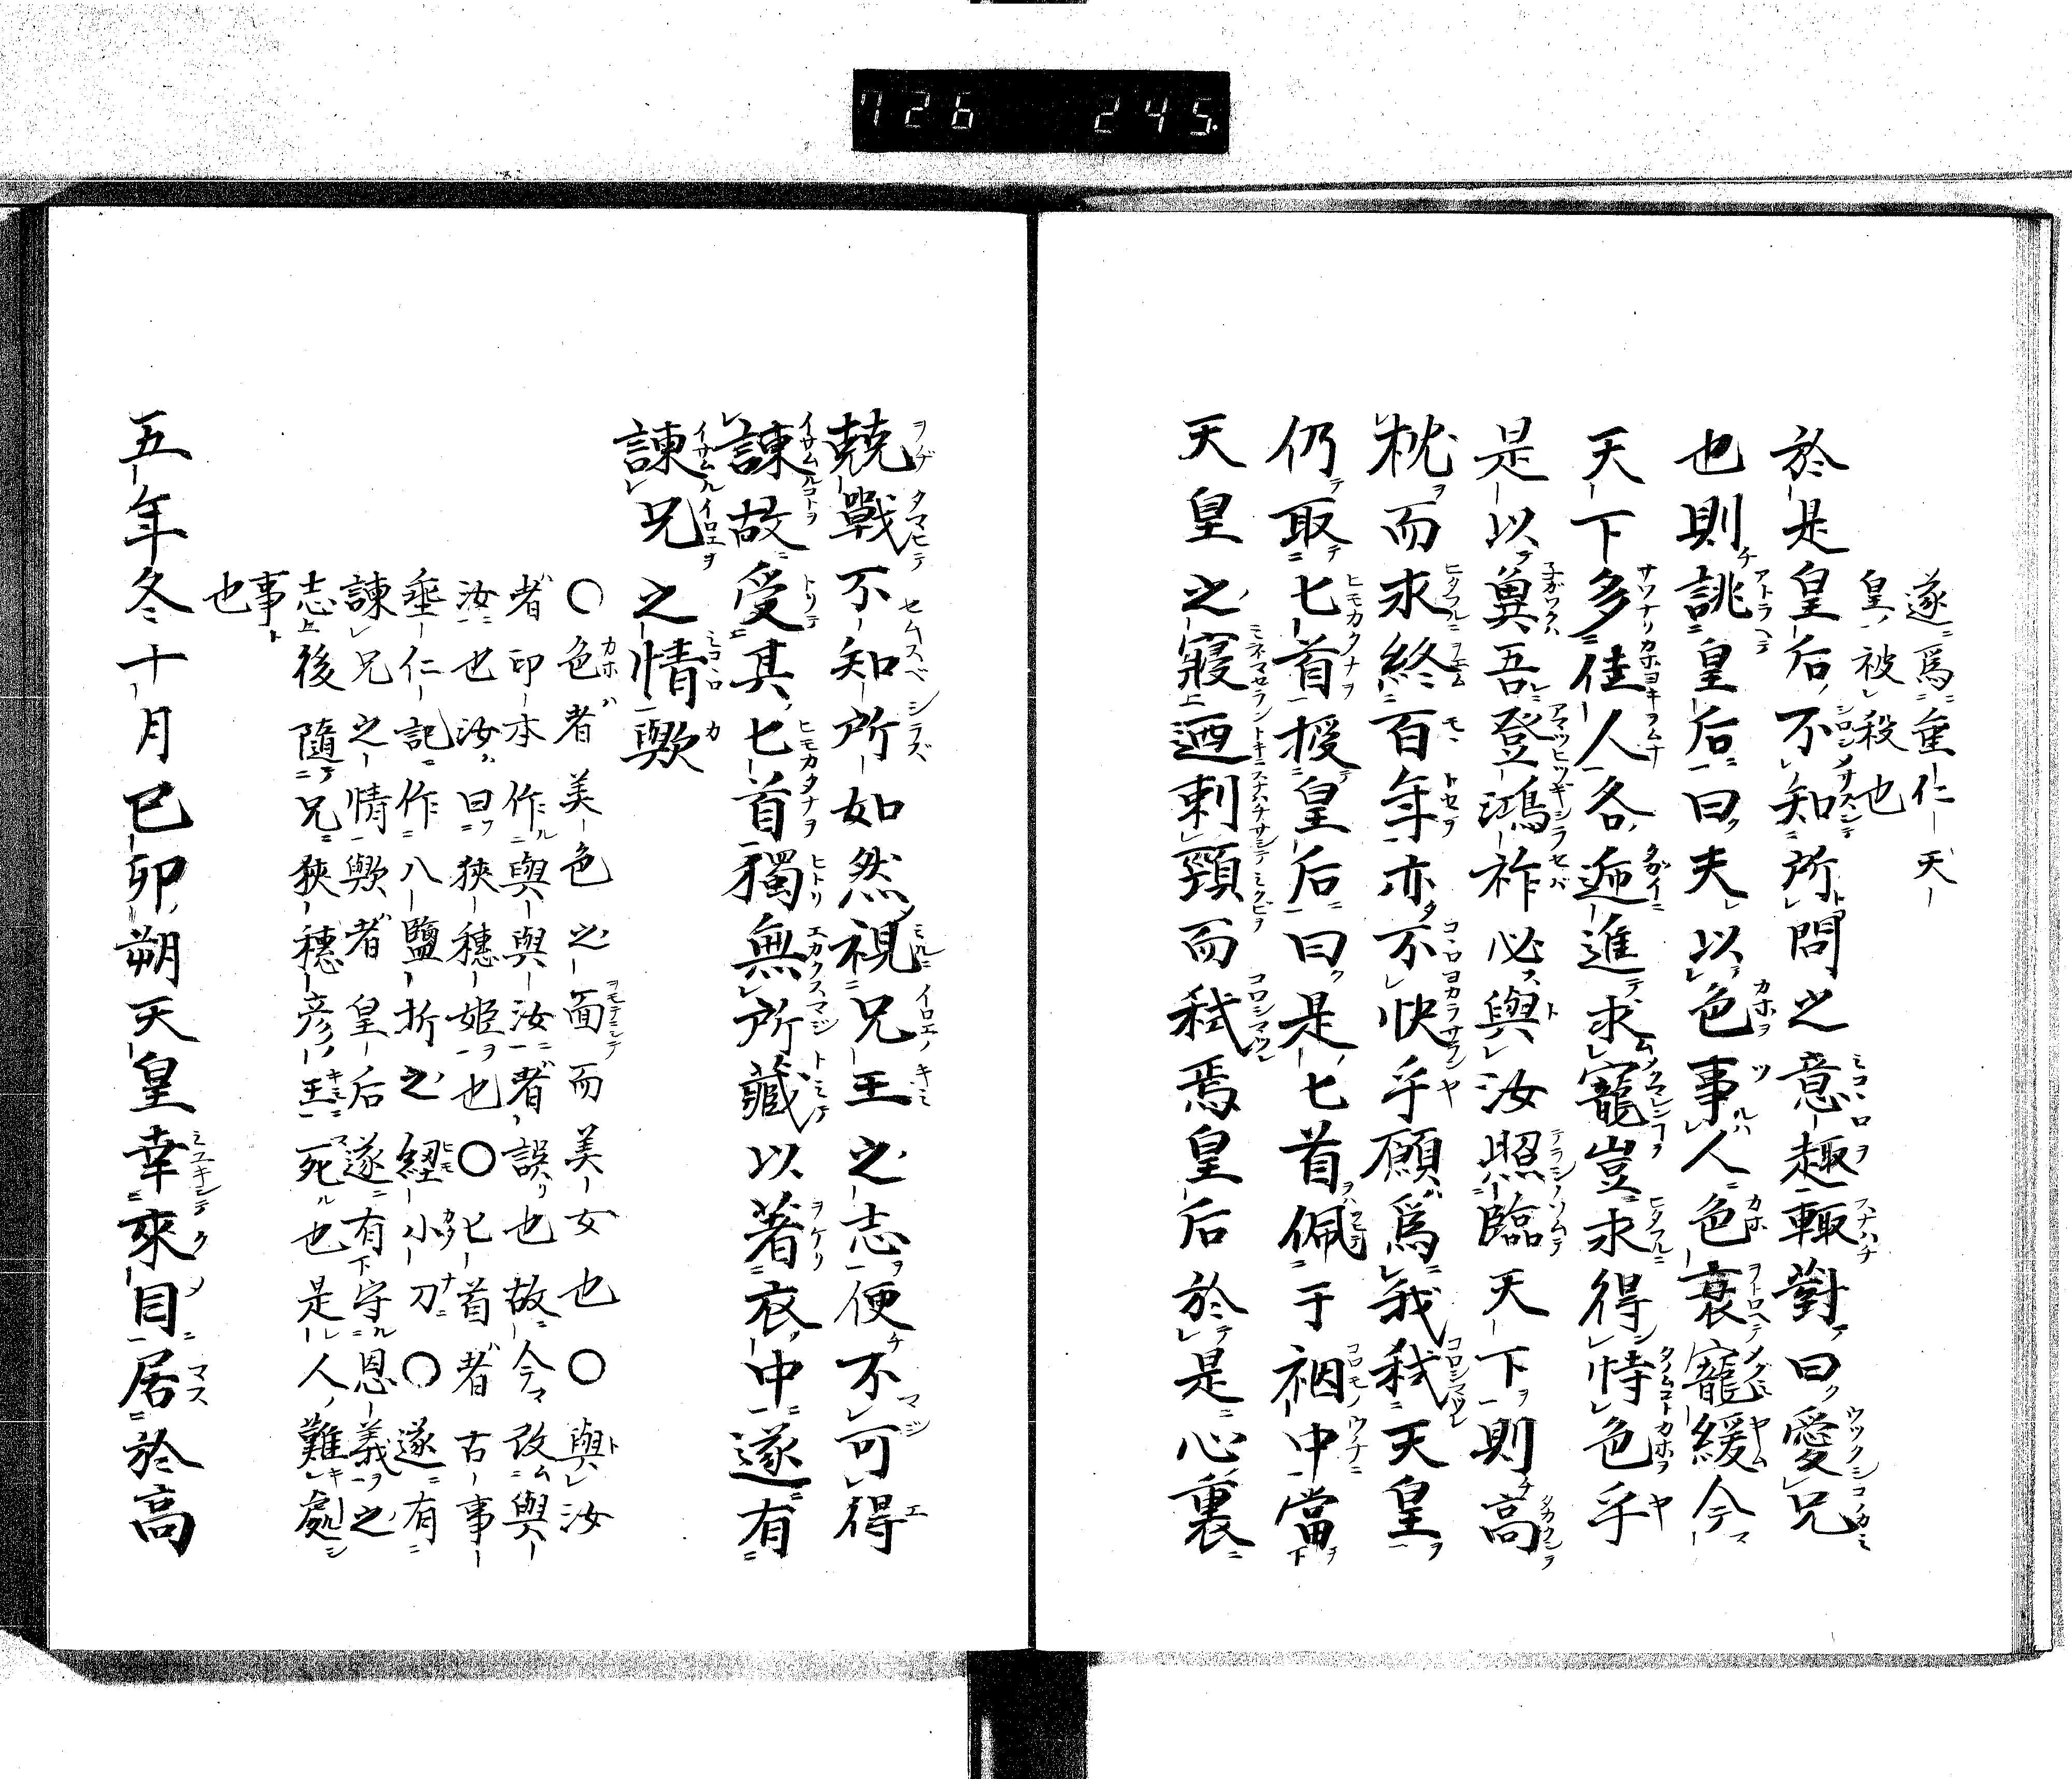 726 245
遂為垂仁天
皇被殺也
於是皇后不知所問之意趣輙對曰愛兄
也則誂皇后曰夫以色事人色衰寵緩今
天下多佳人各遞進求寵豈求得恃色乎
是以冀吾登鴻祚必與汝照臨天下則高
枕而求終百年亦不快乎願為我弒天皇
仍取匕首授皇后曰是匕首佩于裀中當
天皇之寢廼刺頸而弒焉皇后於是心裏
兢戰不知所如然視兄王之志便不可得
諫故受其匕首獨無所藏以著衣中遂有
諫兄之情歟
〇色者美色之面而美女也〇與汝
者印本作與與汝者誤也故今改與
汝也汝曰狹穗姬也〇匕首者古事
垂仁記作八鹽折之紐小刀〇遂有
諫兄之情歟者皇后遂有守恩義之
志後隨兄狹穗彥王死也是人難處
事
也
五年冬十月己卯朔天皇幸來目居於高